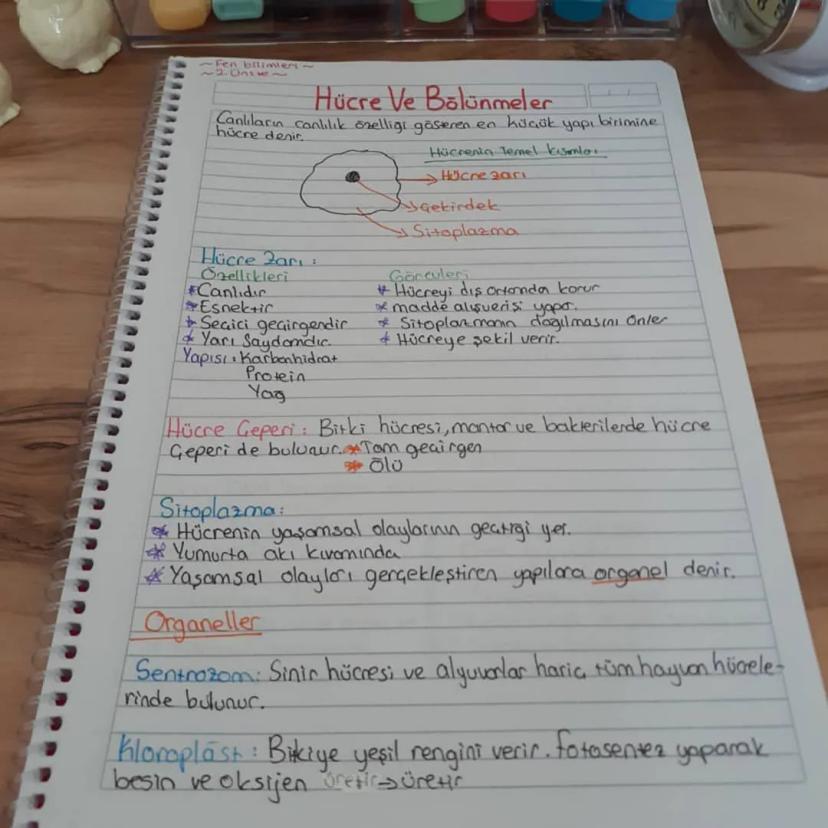 ~Fen bilimleri~
~2.Ünite~
Hücre Ve Bölünmeler
Canlıların canlılık özelliği gösteren en küçük yapı birimine
hücre denir.
Hücrenin Temel Kısımları
Hücre zarı
Çekirdek
Sitoplazma
Hücre Zarı :
Özellikleri
Görevleri
*Canlıdır
* Hücreyi dış ortamda korur
*Esnektir
* madde alışverişi yapar.
* Seçici geçirgendir
* Sitoplazmanın dağılmasını önler
* Yarı Saydamdır.
* Hücreye şekil verir.
Yapısı : Karbonhidrat
Protein
Yağ
Hücre Çeperi : Bitki hücresi, mantar ve bakterilerde hücre
Çeperi de bulunur. *Tam geçirgen
* Ölü
Sitoplazma:
* Hücrenin yaşamsal olaylarının geçtiği yer.
* Yumurta akı kıvamında
* Yaşamsal olayları gerçekleştiren yapılara organel denir.
Organeller
Sentrozom: Sinir hücresi ve alyuvarlar hariç tüm hayvan hücrele-
rinde bulunur.
Kloroplast : Bikiye yeşil rengini verir. fotosentez yaparak
besin ve oksijen üretir→üretir